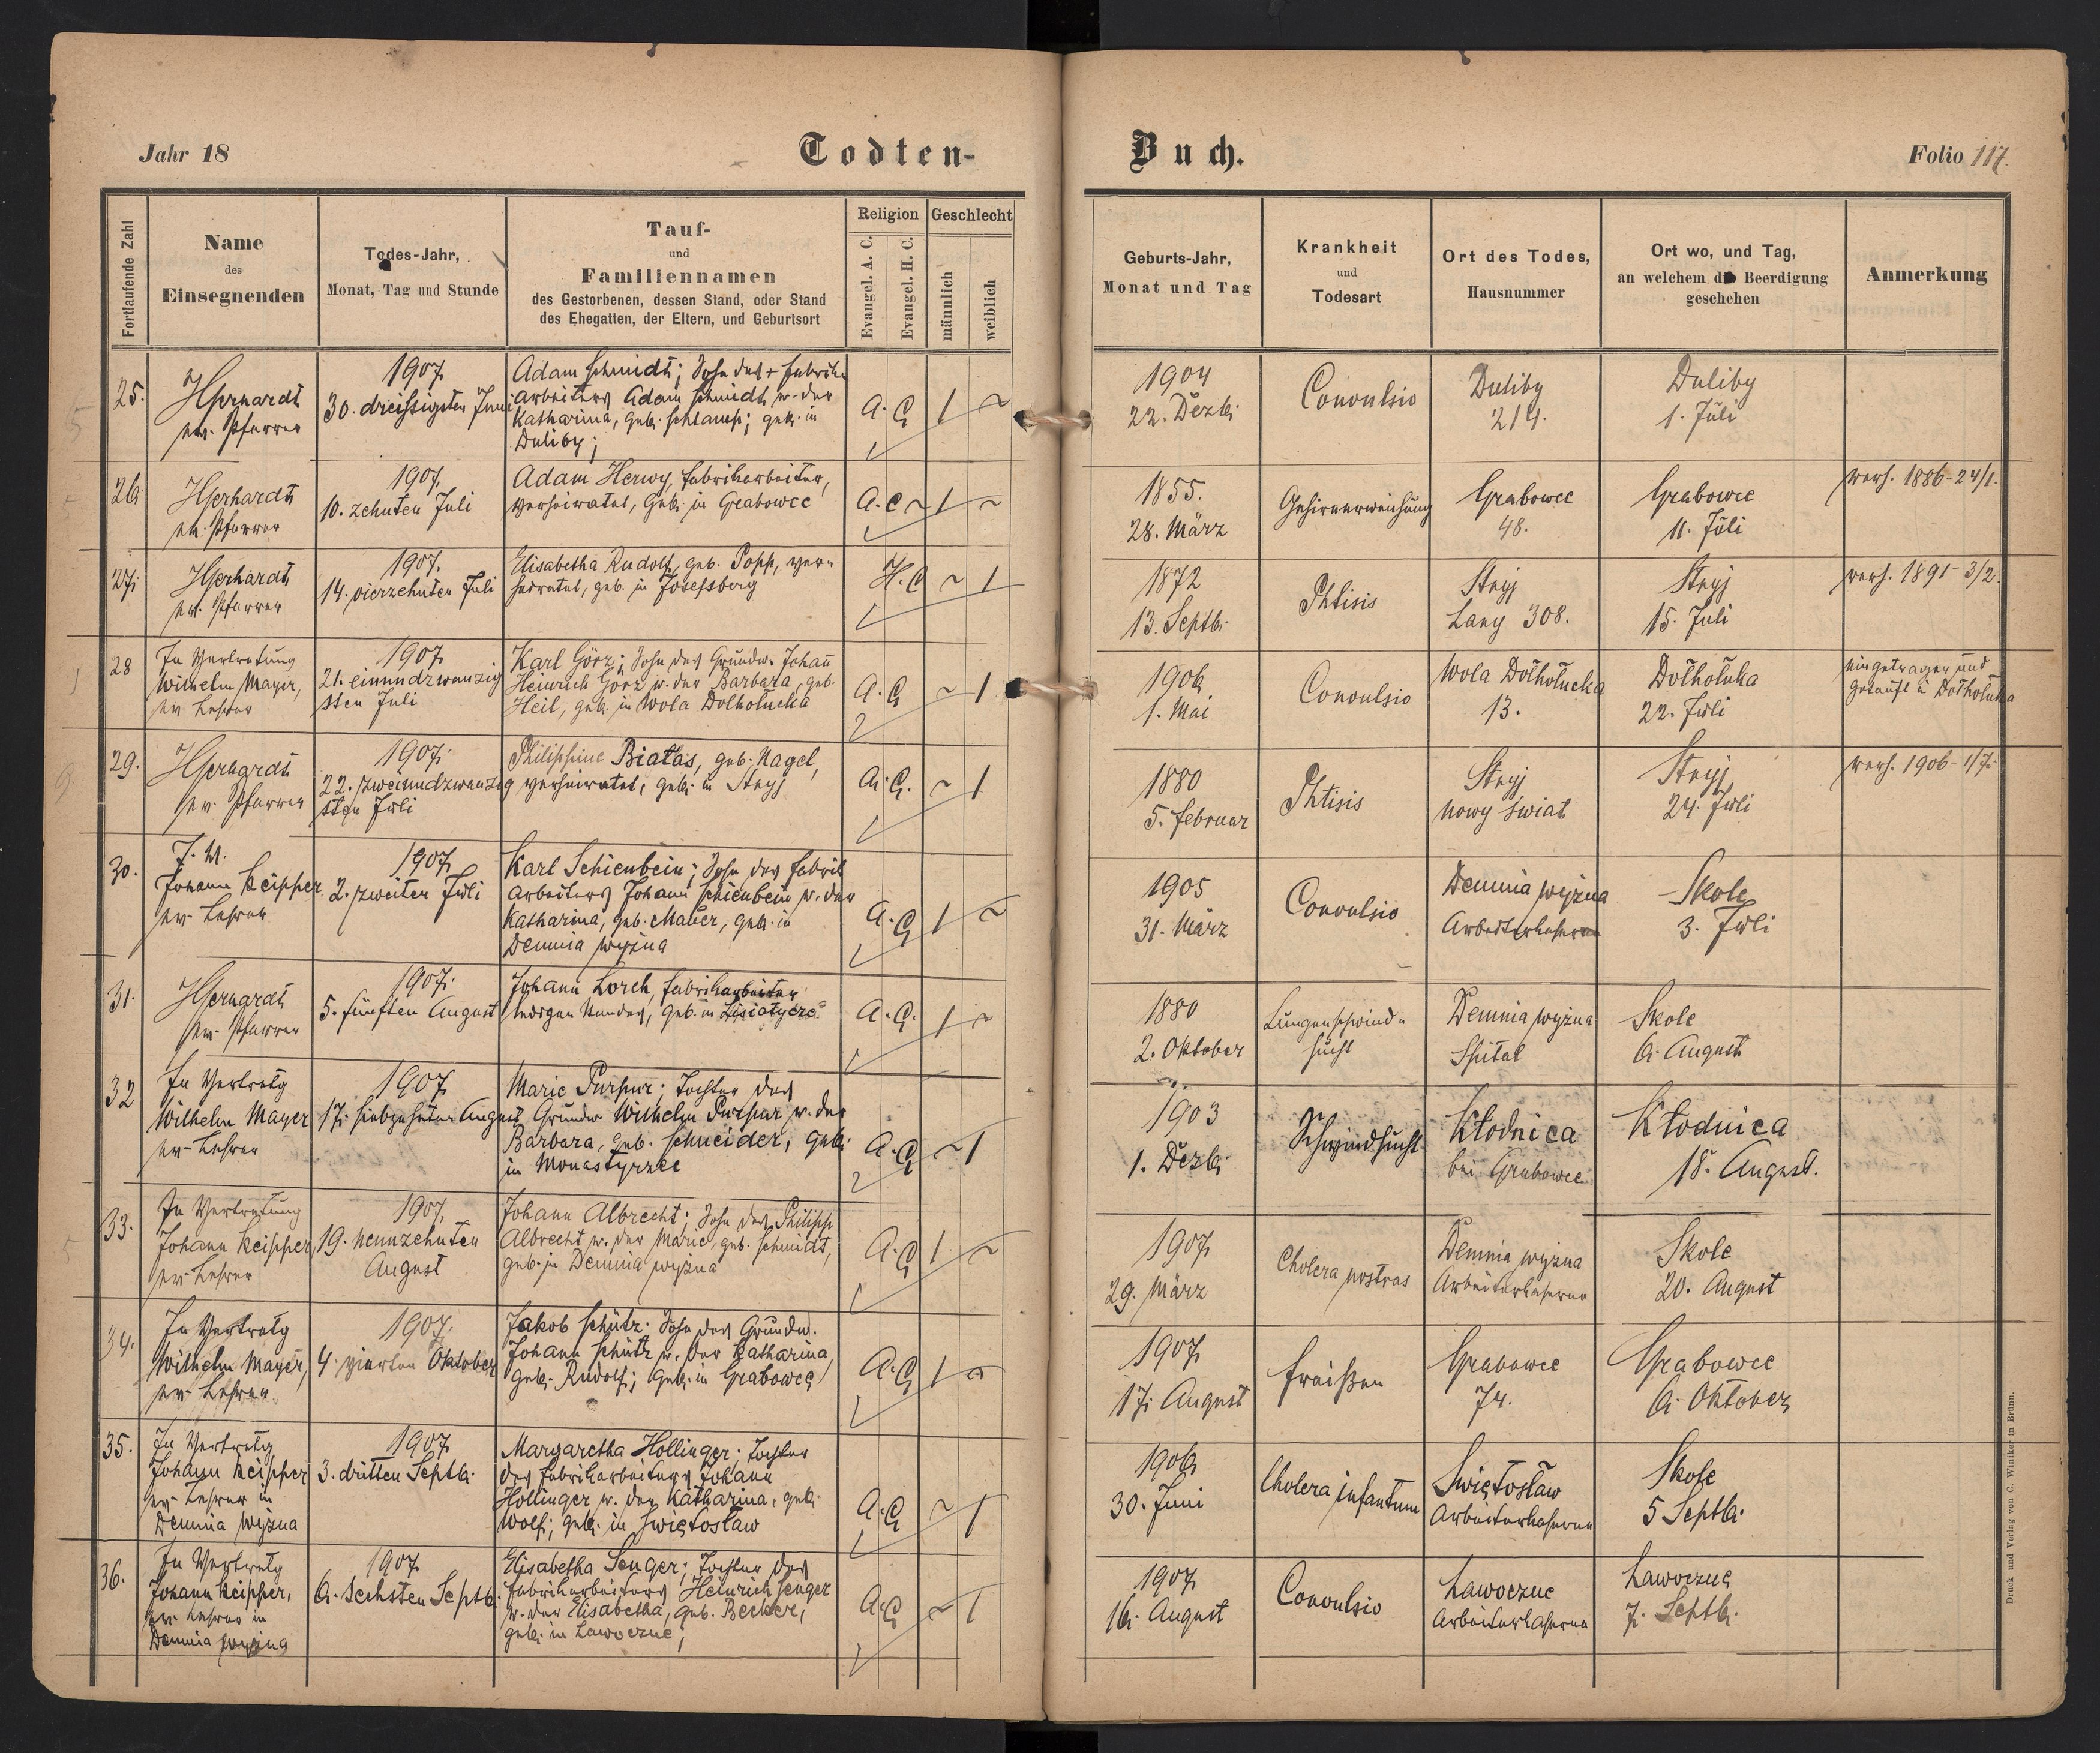 Jahr 18
Todten-
Buch.
Folio 117.
Fortlaufende Zahl
Name
des
Einsegnenden
Todes-Jahr,
Monat, Tag und Stunde
Tauf-
und
Familiennamen
des Gestorbenen, dessen Stand, oder Stand
des Ehegatten, der Eltern, und Geburtsort
Religion
Evangel. A. C.
Evangel. H. C.
Geschlecht
männlich
weiblich
Geburts-Jahr,
Monat und Tag
Krankheit
und
Todesart
Ort des Todes,
Hausnummer
Ort wo, und Tag,
an welchem die Beerdigung
geschehen
Anmerkung
25.
ev. Pfarrer
1907
30. dreissigsten Juni
Adam Schmidt; Sohn des + Fabriks
arbeiters Adam Schmidt u. der
Katharina, geb. Schlamp; geb. in
Duliby;
A. C
1 ~
1904
22. Dezb.
Convulsio
Duliby
214.
Duliby
1. Juli
26.
HGerhardt
ev. Pfarrer
1907.
10. zehnten Juli
Adam Herwy, Fabriksarbeiter,
verheiratet, Geb. in Grabowce
A. C ~ 1 ~
1855.
28. März
Gehirnerweichung
Grabowce
48.
Grabowce
11. Juli
verh. 1886-24/1.
27.
HGerhardt
ev. Pfarrer
1907.
14. vierzehnten Juli
Elisabetha Rudolf, geb. Popp, ver-
heiratet, geb. in Josefsberg
H. C ~ 1
1872
13. Septb.
Phtisis
Stryj
Lany 308.
Stryj
15. Juli
verh. 1891-3/2.
28
In Vertretung
Wilhelm Mayer,
ev Lehrer
1907
21. einundzwanzig
sten Juli
Karl Görz; Sohn des Grundw. Johañ
Heinrich Görz u. der Barbara, geb.
Heil, geb. in Wola Dolholucka
A. C ~ 1
1906
1. Mai
Convulsio
Wola Dołhołucka
13.
Dołhołuka
22. Juli
eingetragen und
getauft in Dołhołuka
29.
HGerhardt
ev. Pfarrer
1907.
22. zweiundzwanzig
sten Juli
Philippine Białas, geb. Nagel,
verheiratet, geb. in Stryj
A. C. ~ 1
1880
5. Februar
Phtisis
Stryj
nowy świat
Stryj
24. Juli
verh. 1906-1/7.
30.
J. V.
Johann Keipper
ev. Lehrer
1907
2. zweiten Juli
Karl Schienbein; Sohn des Fabrik
arbeiters Johann Schienbein u. der
Katharina, geb. Mauer, geb. in
Demnia wyżna
A. C 1 ~
1905
31. März
Convulsio
Demnia wyżna
Arbeiterkaserne
Skole
3. Juli
31.
HGerhardt
ev. Pfarrer
1907.
5. fünften August
Johann Lorch, Fabriksarbeiter
geb. in Lisiatycze
A. C. 1 ~
1880
2. Oktober
Lungenschwind-
sucht
Demnia wyżna
Spital
Skole
6. August
32
In Vertretg
Wilhelm Mayer
ev. Lehrer
1907
17. siebzehnten August
Marie Purpur; Tochter des
Grundw Wilhelm Purpur u. der
Barbara, geb. Schneider, geb.
in Monastyrzec
A. C ~ 1
1903
1. Dezb.
Schwindsucht
Kłodnica
bei Grabowce
Kłodnica
18. August.
33.
In Vertretung
Johann Keipper
ev. Lehrer
1907.
19. neunzehnten
August
Johann Albrecht; Sohn des Philipp
Albrecht u. der Marie, geb. Schmidt,
geb. in Demnia wyżna
A. C 1 ~
1907
29. März
Cholera nostras
Demnia wyżna
Arbeiterkaserne
Skole
20. August
34.
In Vertretg
Wilhelm Mayer,
ev. Lehrer
1907.
4. vierten Oktober
Jakob Schütz. Sohn des Grundw.
Johann Schütz u. der Katharina
geb. Rudolf; Geb. in Grabowce
A. C 1 ~
1907
17. August
Fraißen
Grabowce
74.
Grabowce
6. Oktober
35.
In Vertretg
Johann Keipper
ev. Lehrer in
Demnia wyżna
1907
3. dritten Septb.
Margaretha Hollinger; Tochter
des Fabriksarbeiters Johann
Hollinger u. der Katharina, geb.
Wolf; geb. in Świętosław
A. C ~ 1
1906
30. Juni
Cholera infantum
Świętosław
Arbeiterkaserne
Skole
5 Septb.
36.
In Vertretg
Johann Keipper,
ev. Lehrer in
Demnia wyżna
1907
6. sechsten Septb.
Elisabetha Senger; Tochter des
Fabriksarbeiters Heinrich Senger
u. der Elisabetha, geb. Becker,
geb. in Lawoczne;
A. C ~ 1
1907
16. August
Convulsio
Lawoczne
Arbeiterkaserne
Lawoczne
7. Septb.
Druck und Verlag von C. Winiker in Brünn.